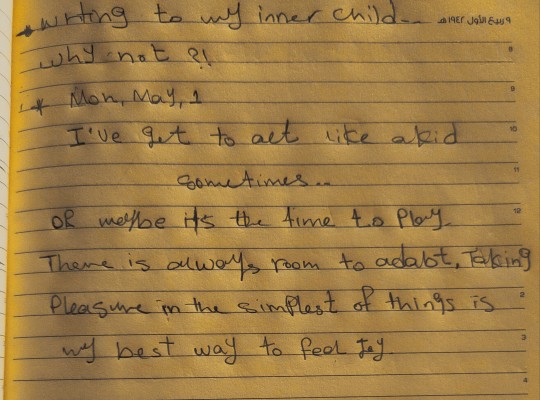 writing to my inner child...
why not ?!
Mon, May, 1
I've get to act like a kid
sometimes..
OR maybe it's the time to Play.
There is always room to adabt. Taking
Pleasure in the simplest of things is
my best way to feel Joy
8
9
10
11
12
2
3
4